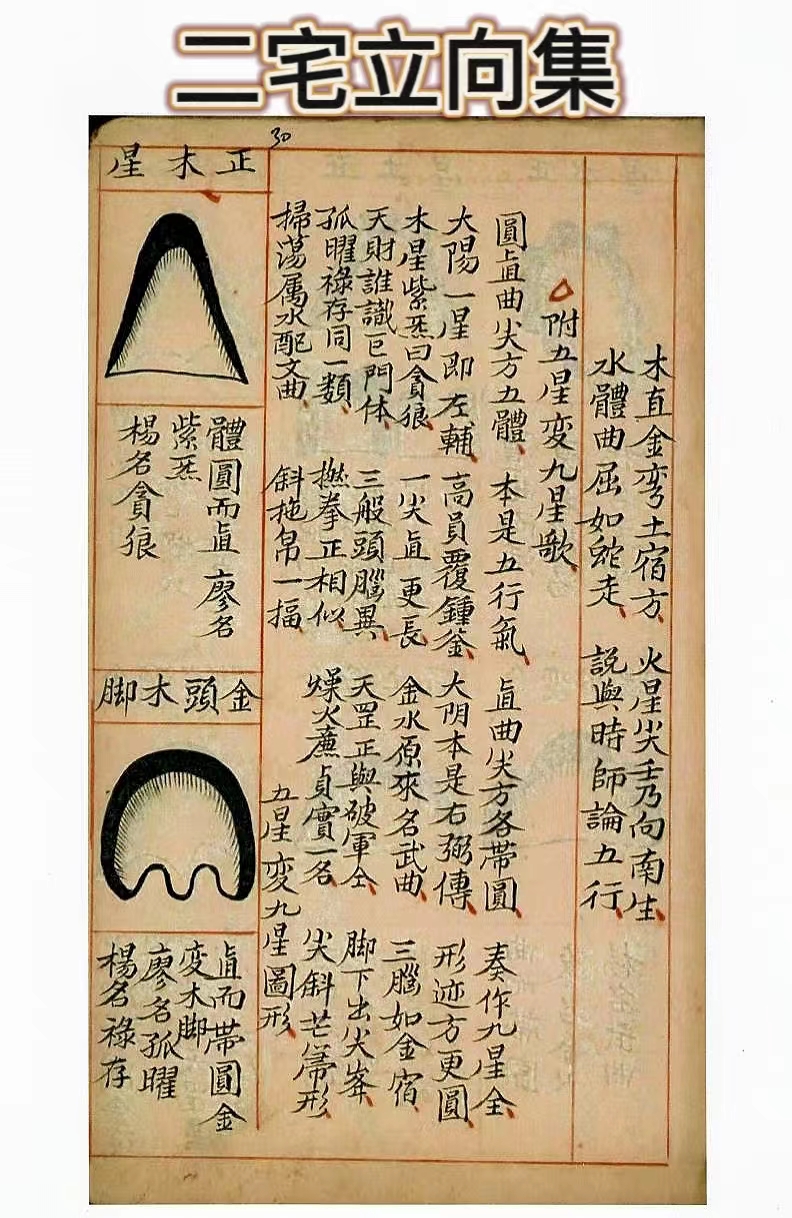 二宅立向集
30
木直金弯土宿方、火星尖壬乃向南生、
水體曲屈如蛇走、說與時師論五行、
附五星変九星歌、
圓直曲尖方五體、本是五行氣、直曲尖方各帶圓、奏作九星全、
大陽一星即左輔、高員覆鍾釜、大阴本是右弼傳、形迹方更圓、
木星紫炁曰貪狼、一尖直更長、金水原來名武曲、三腦如金宿、
天財誰識巨門体、三般頭腦異、天罡正與破軍仝、脚下出尖峯、
孤曜祿存同一類、撚拳正相似、燥火廉貞實一名、尖斜芒箒形、
掃蕩属水配文曲、斜拖帛一幅、
五星変九星圖形、
正木星
體圓而直 廖名
紫炁
楊名貪狼
金頭木脚
直而帶圓金
変木脚
廖名孤曜
楊名祿存